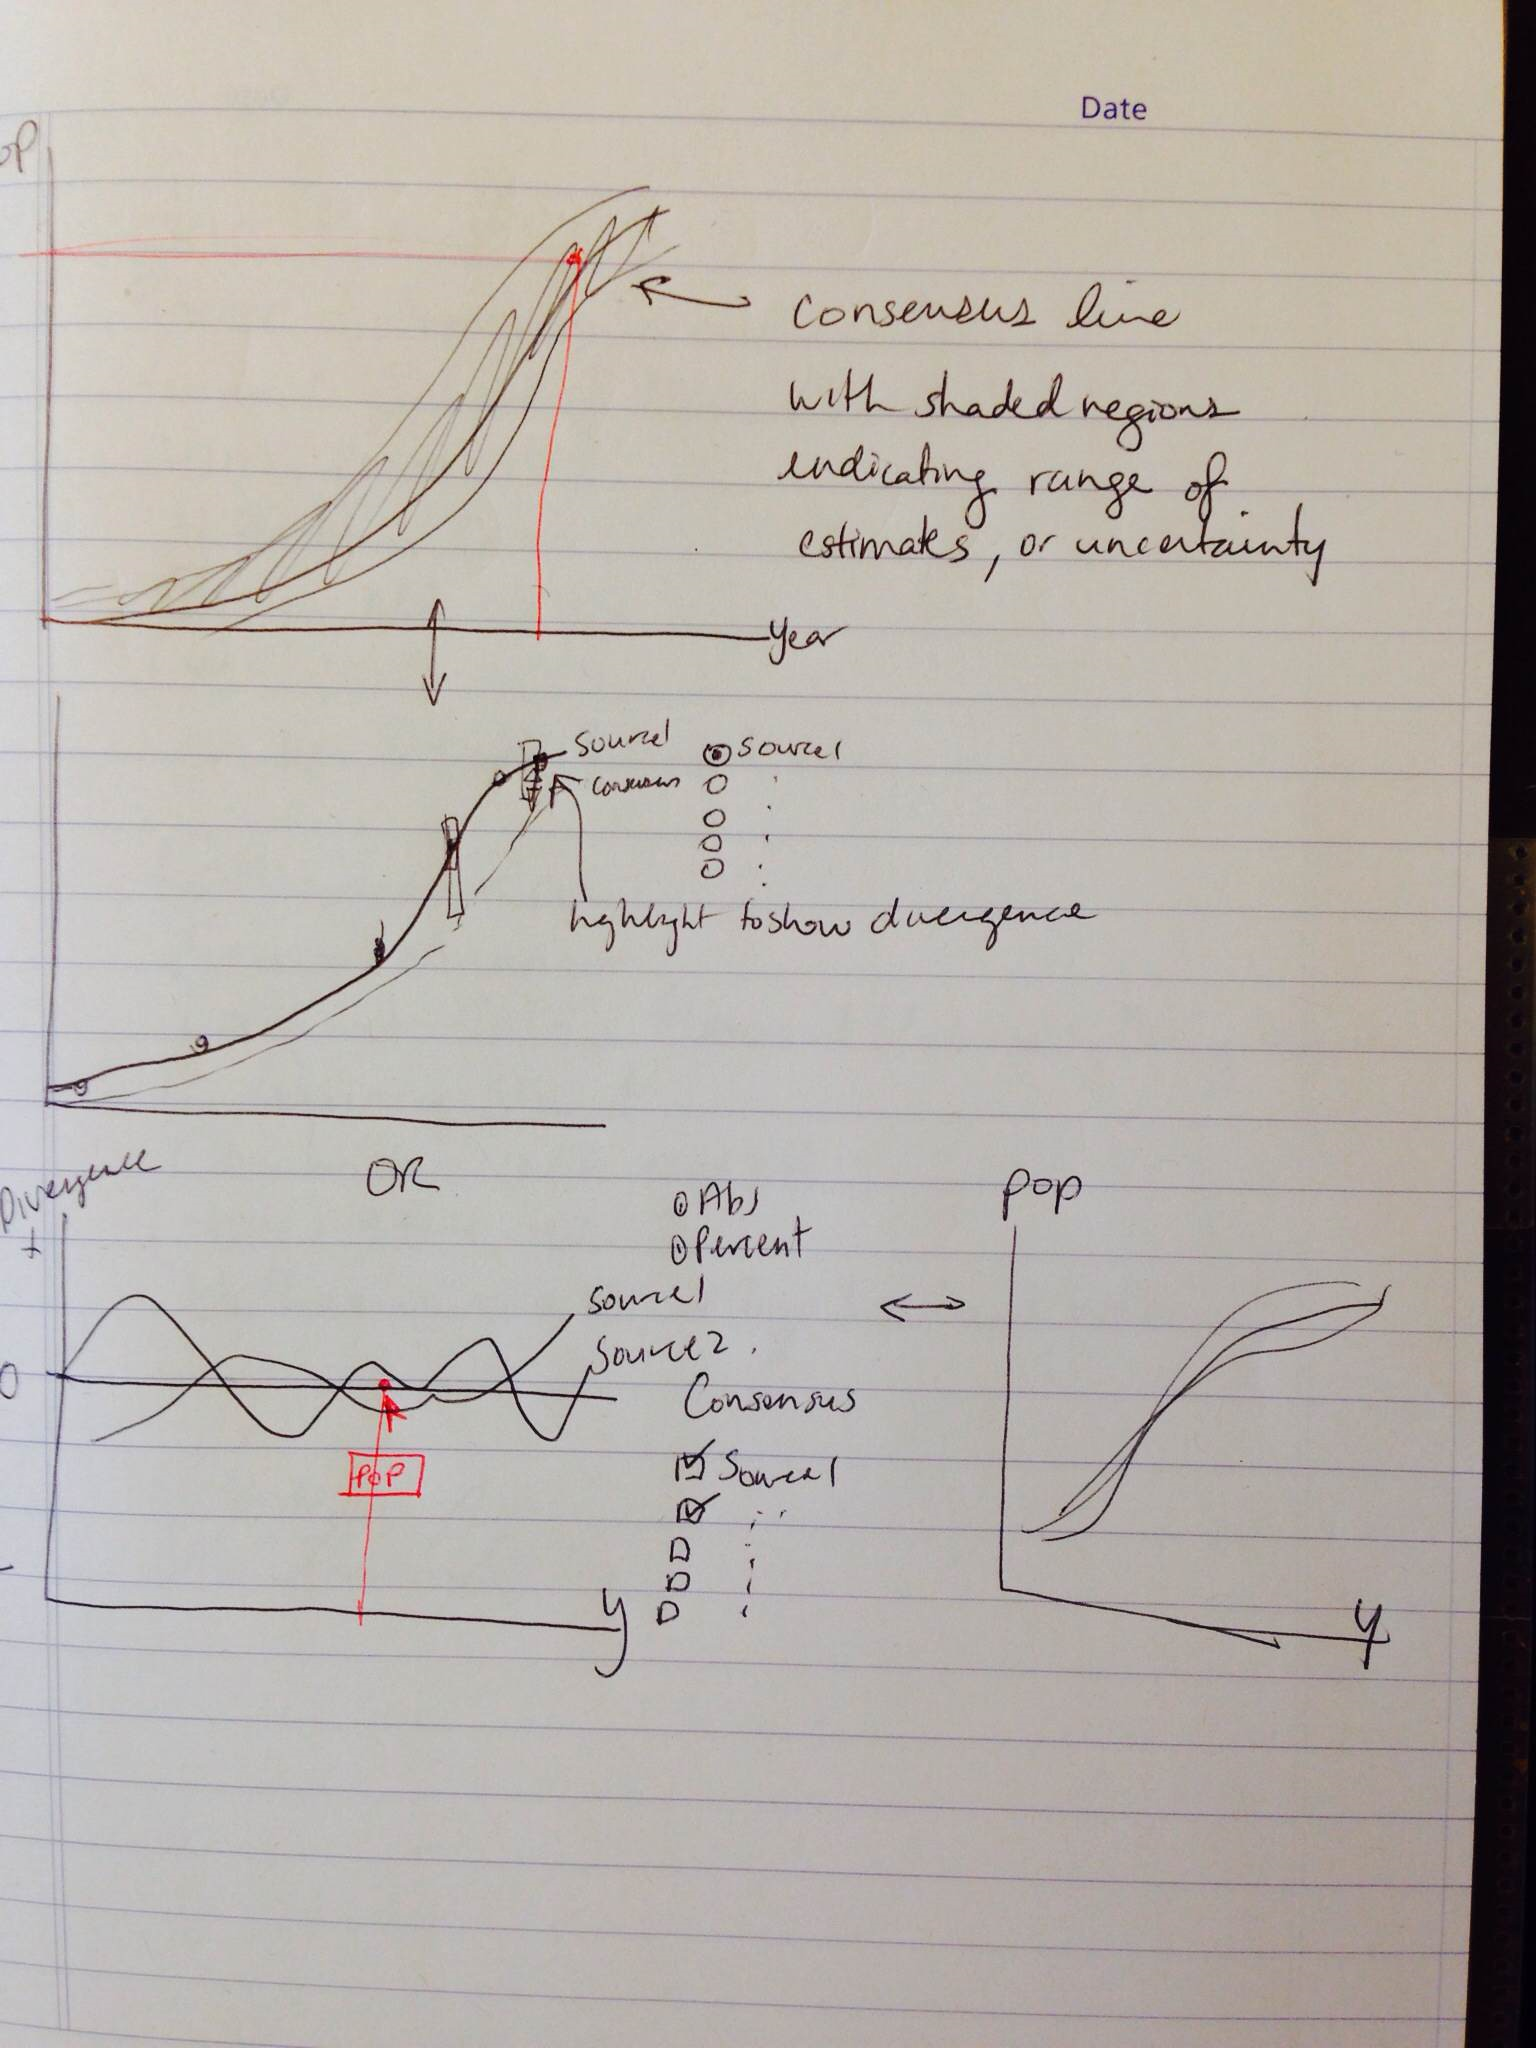 Date
op
Consensus line
with shaded regions
indicating range of
estimates, or uncertainty
Year
Source1
Source1
Consensus
highlight to show divergence
Divergence
+
OR
Abs
Percent
Pop
Source1
Source2
0
Consensus
POP
Source1
-
y
y